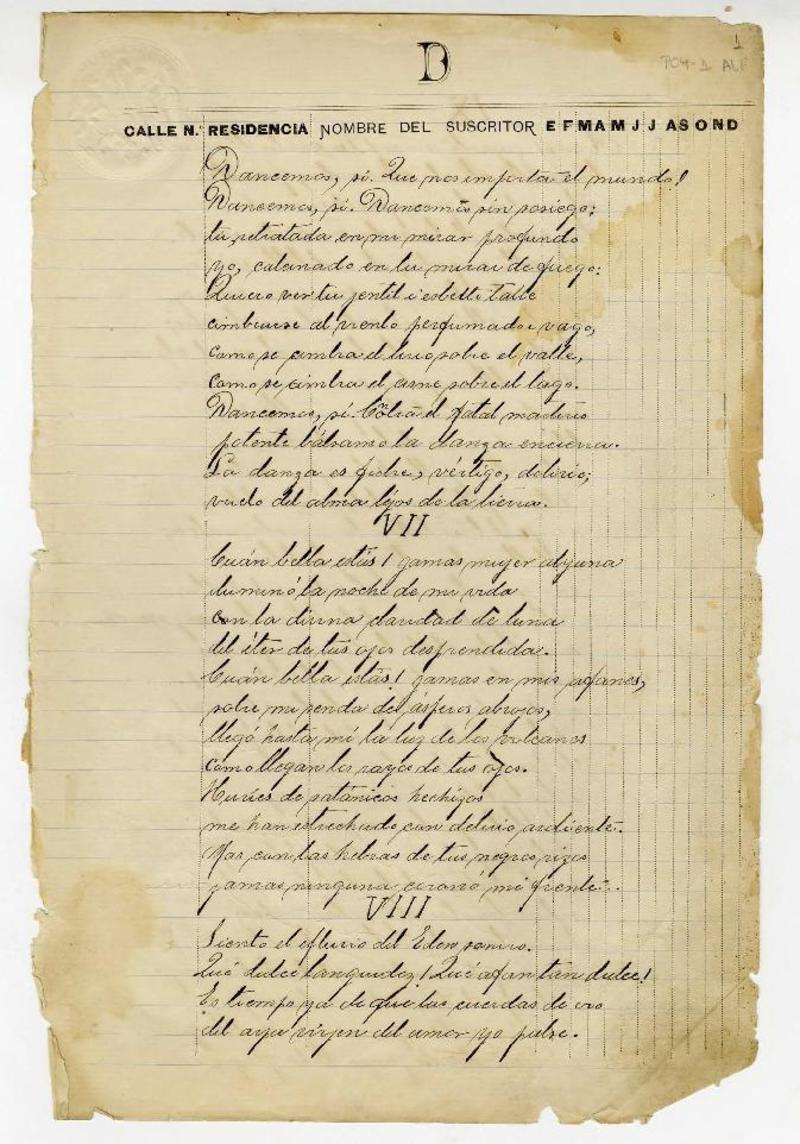 D
1
704-1 ALF
CALLE N.º RESIDENCIA NOMBRE DEL SUSCRITOR E F M A M J J A S O N D
Dancemos, sí. Que nos importa el mundo!
Dancemos, sí. Dancemos sin sosiego:
tú, retratada en mi mirar profundo
yo, calcinado en tu mirar de fuego:
Quiero ver tu jentil i esbelto talle
cimbrarse al viento perfumado i vago,
como se cimbra el lirio sobre el valle,
como se cimbra el cisne sobre el lago.
Dancemos, sí. Cõtra el fatal martirio
potente bálsamo la danza encierra.
La danza es fiebre, vértigo, delirio;
vuelo del alma lejos de la tierra.
VII
Cuán bella estás! Jamas mujer alguna
iluminó la noche de mi vida
con la divina claridad de luna
del éter de tus ojos desprendida.
Cuán bella estás! Jamas en mis afanes,
sobre mi senda de ásperos abrojos,
llegó hasta mí la luz de los volcanes
como llegan los rayos de tus ojos.
Huríes de satánicos hechizos
me han estrechado con delirio ardiente.
Mas con las hebras de tus negros rizos
jamas ninguna coronó mi frente.
VIII
Siento el efluvio del Eden sonoro.
Qué dulce languidez! Qué afan tan dulce!
Es tiempo ya de que las cuerdas de oro
del arpa vírjen del amor yo pulse.